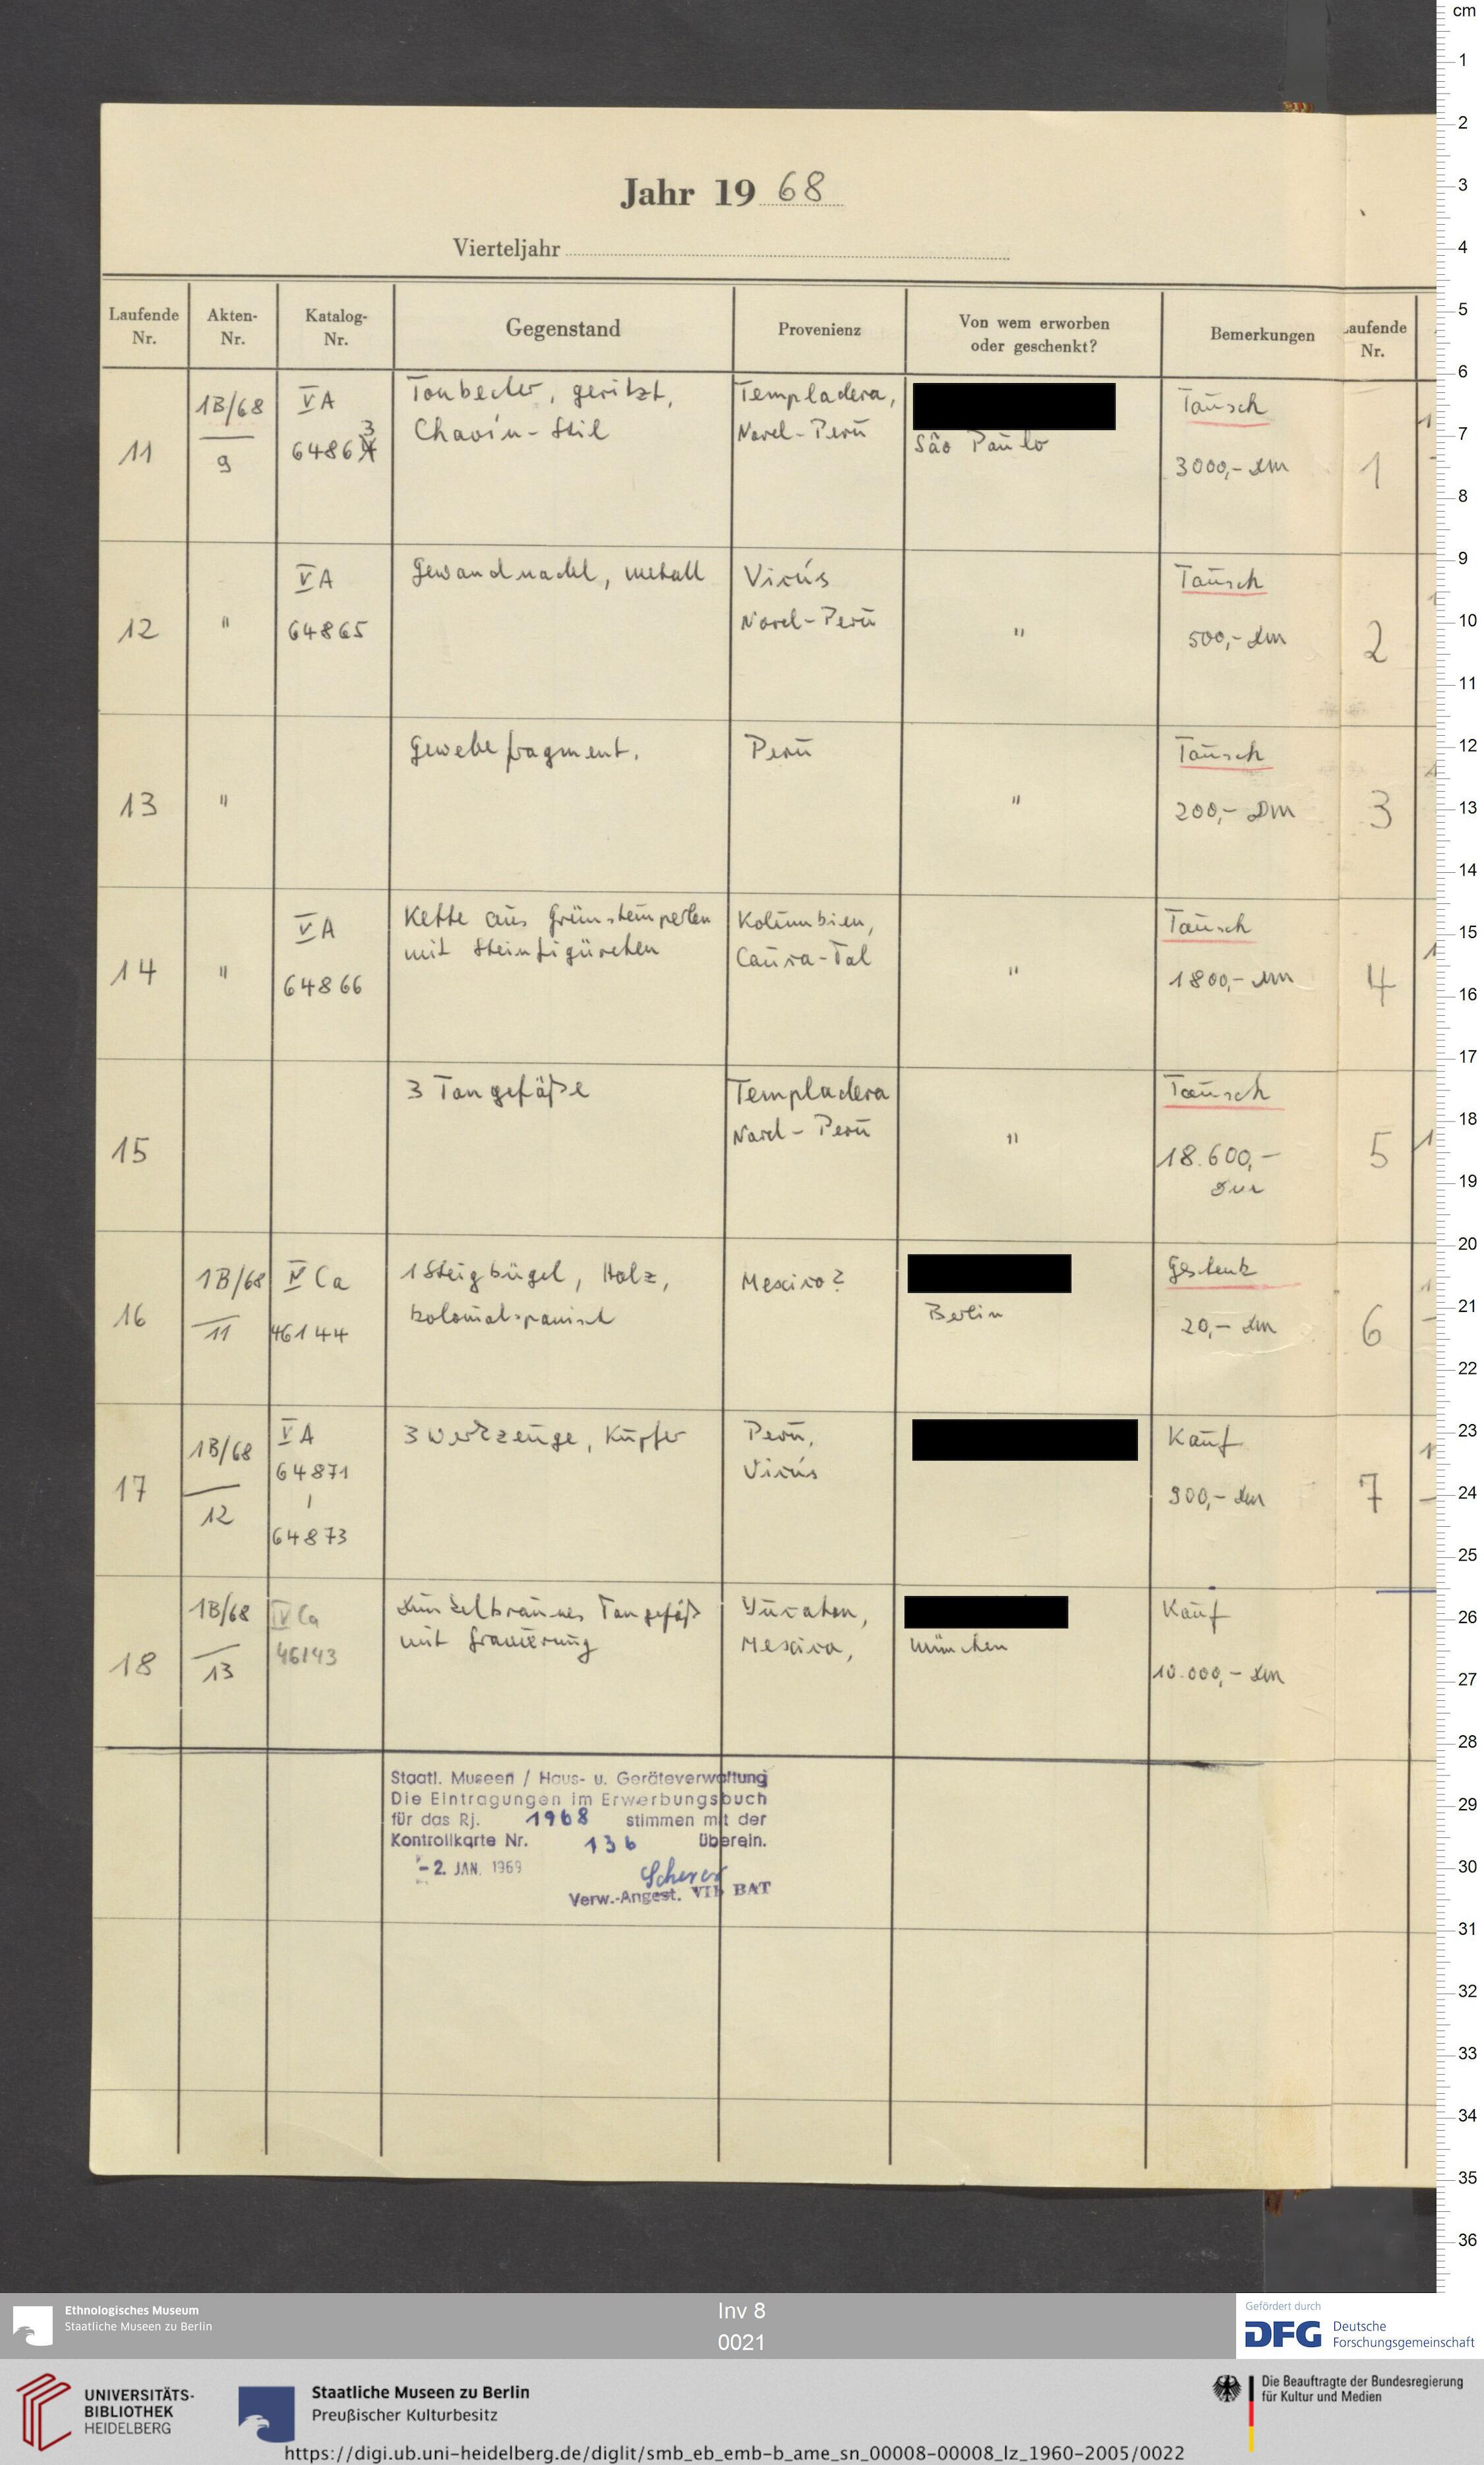 Jahr 19 68
Vierteljahr
Laufende Nr.
Akten-Nr.
Katalog-Nr.
Gegenstand
Provenienz
Von wem erworben oder geschenkt?
Bemerkungen
Laufende Nr.
11
1B/68
9
VA
64863
Tonbecher, geritzt,
Chavín-Stil
Templadera,
Nord-Perū
São Paulo
Tausch
3000,- DM
1
12
"
VA
64865
Gewandnadel, Metall
Vicús
Nord-Perū
"
Tausch
500,- DM
2
13
"
Gewebefragment.
Perū
"
Tausch
200,- DM
3
14
"
VA
64866
Kette aus Grünsteinperlen
mit Steinfigürchen
Kolumbien,
Cauca-Tal
"
Tausch
1800,- DM
4
15
3 Tongefäße
Templadera
Nord-Perū
"
Tausch
18.600,-
DM
5
16
1B/68
11
IV Ca
46144
1 Steigbügel, Holz,
kolonialspanisch
Mexico?
Berlin
Geschenk
20,- DM
6
17
1B/68
12
VA
64871
64873
3 Werkzeuge, Kupfer
Perū,
Vicús
Kauf
900,- DM
7
18
1B/68
13
IV Ca
46143
Dunkelbraunes Tongefäß
mit Gravierung
Yucatan,
Mexico,
München
Kauf
10.000,- DM
Staatl. Museen / Haus- u. Geräteverwaltung
Die Eintragungen im Erwerbungsbuch
für das Rj. 1968 stimmen mit der
Kontrollkarte Nr. 136 überein.
- 2. JAN. 1969
Scherer
Verw.-Angest. VII BAT
cm
1
2
3
4
5
6
7
8
9
10
11
12
13
14
15
16
17
18
19
20
21
22
23
24
25
26
27
28
29
30
31
32
33
34
35
36
Ethnologisches Museum
Staatliche Museen zu Berlin
Inv 8
0021
Gefördert durch
DFG Deutsche
Forschungsgemeinschaft
UNIVERSITÄTS-
BIBLIOTHEK
HEIDELBERG
Staatliche Museen zu Berlin
Preußischer Kulturbesitz
Die Beauftragte der Bundesregierung
für Kultur und Medien
https://digi.ub.uni-heidelberg.de/diglit/smb_eb_emb-b_ame_sn_00008-00008_lz_1960-2005/0022